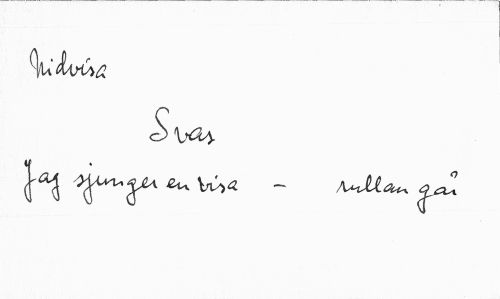 Nidvisa
Svas
Jag sjunger en visa – rullan går